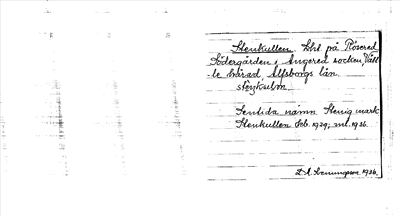 Stenkullen lht på Rösered
Södergården i Angered socken, Vätt-
le härad, Älfsborgs län.
Sentida namn Stenig mark
Stenkullen feb. 1929; ml. 1936.
1936.